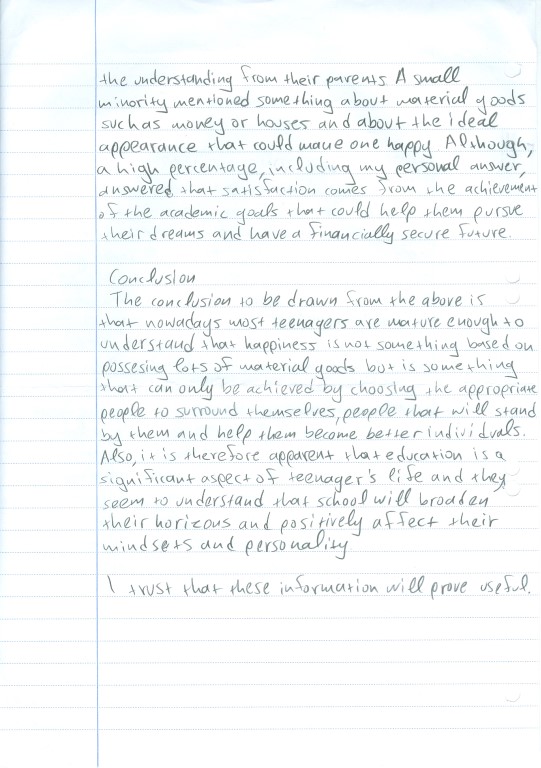 the understanding from their parents. A small
minority mentioned something about material goods
such as money or houses and about the ideal
appearance that could make one happy. Although,
a high percentage, including my personal answer,
answered that satisfaction comes from the achievement
of the academic goals that could help them pursue
their dreams and have a financially secure future.
Conclusion
The conclusion to be drawn from the above is
that nowadays most teenagers are mature enough to
understand that happiness is not something based on
possesing lots of material goods but is something
that can only be achieved by choosing the appropriate
people to surround themselves, people that will stand
by them and help them become better individuals.
Also, it is therefore apparent that education is a
significant aspect of teenager's life and they
seem to understand that school will broaden
their horizons and positively affect their
mindsets and personality.
I trust that these information will prove useful.